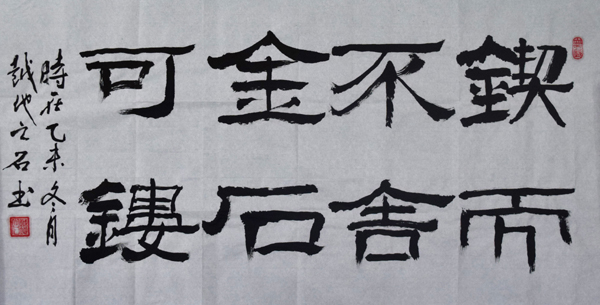 鍥而
不舍
金石
可鏤
時在乙未冬月
越地之石书